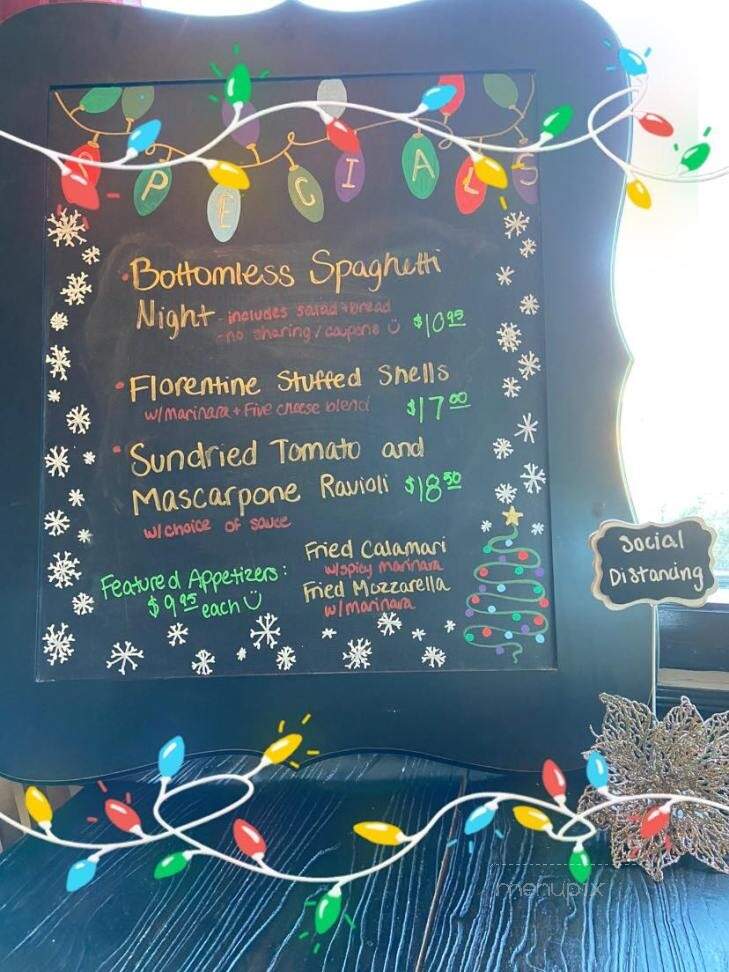 SPECIALS
• Bottomless Spaghetti
Night - includes salad + bread
- no sharing / coupons $10.95
• Florentine Stuffed Shells
w/ marinara + Five cheese blend $17.00
• Sundried Tomato and
Mascarpone Ravioli $18.50
w/ choice of sauce
Featured Appetizers:
$9.95 each
Fried Calamari
w/ spicy marinara
Fried Mozzarella
w/ marinara
Social
Distancing
menupix